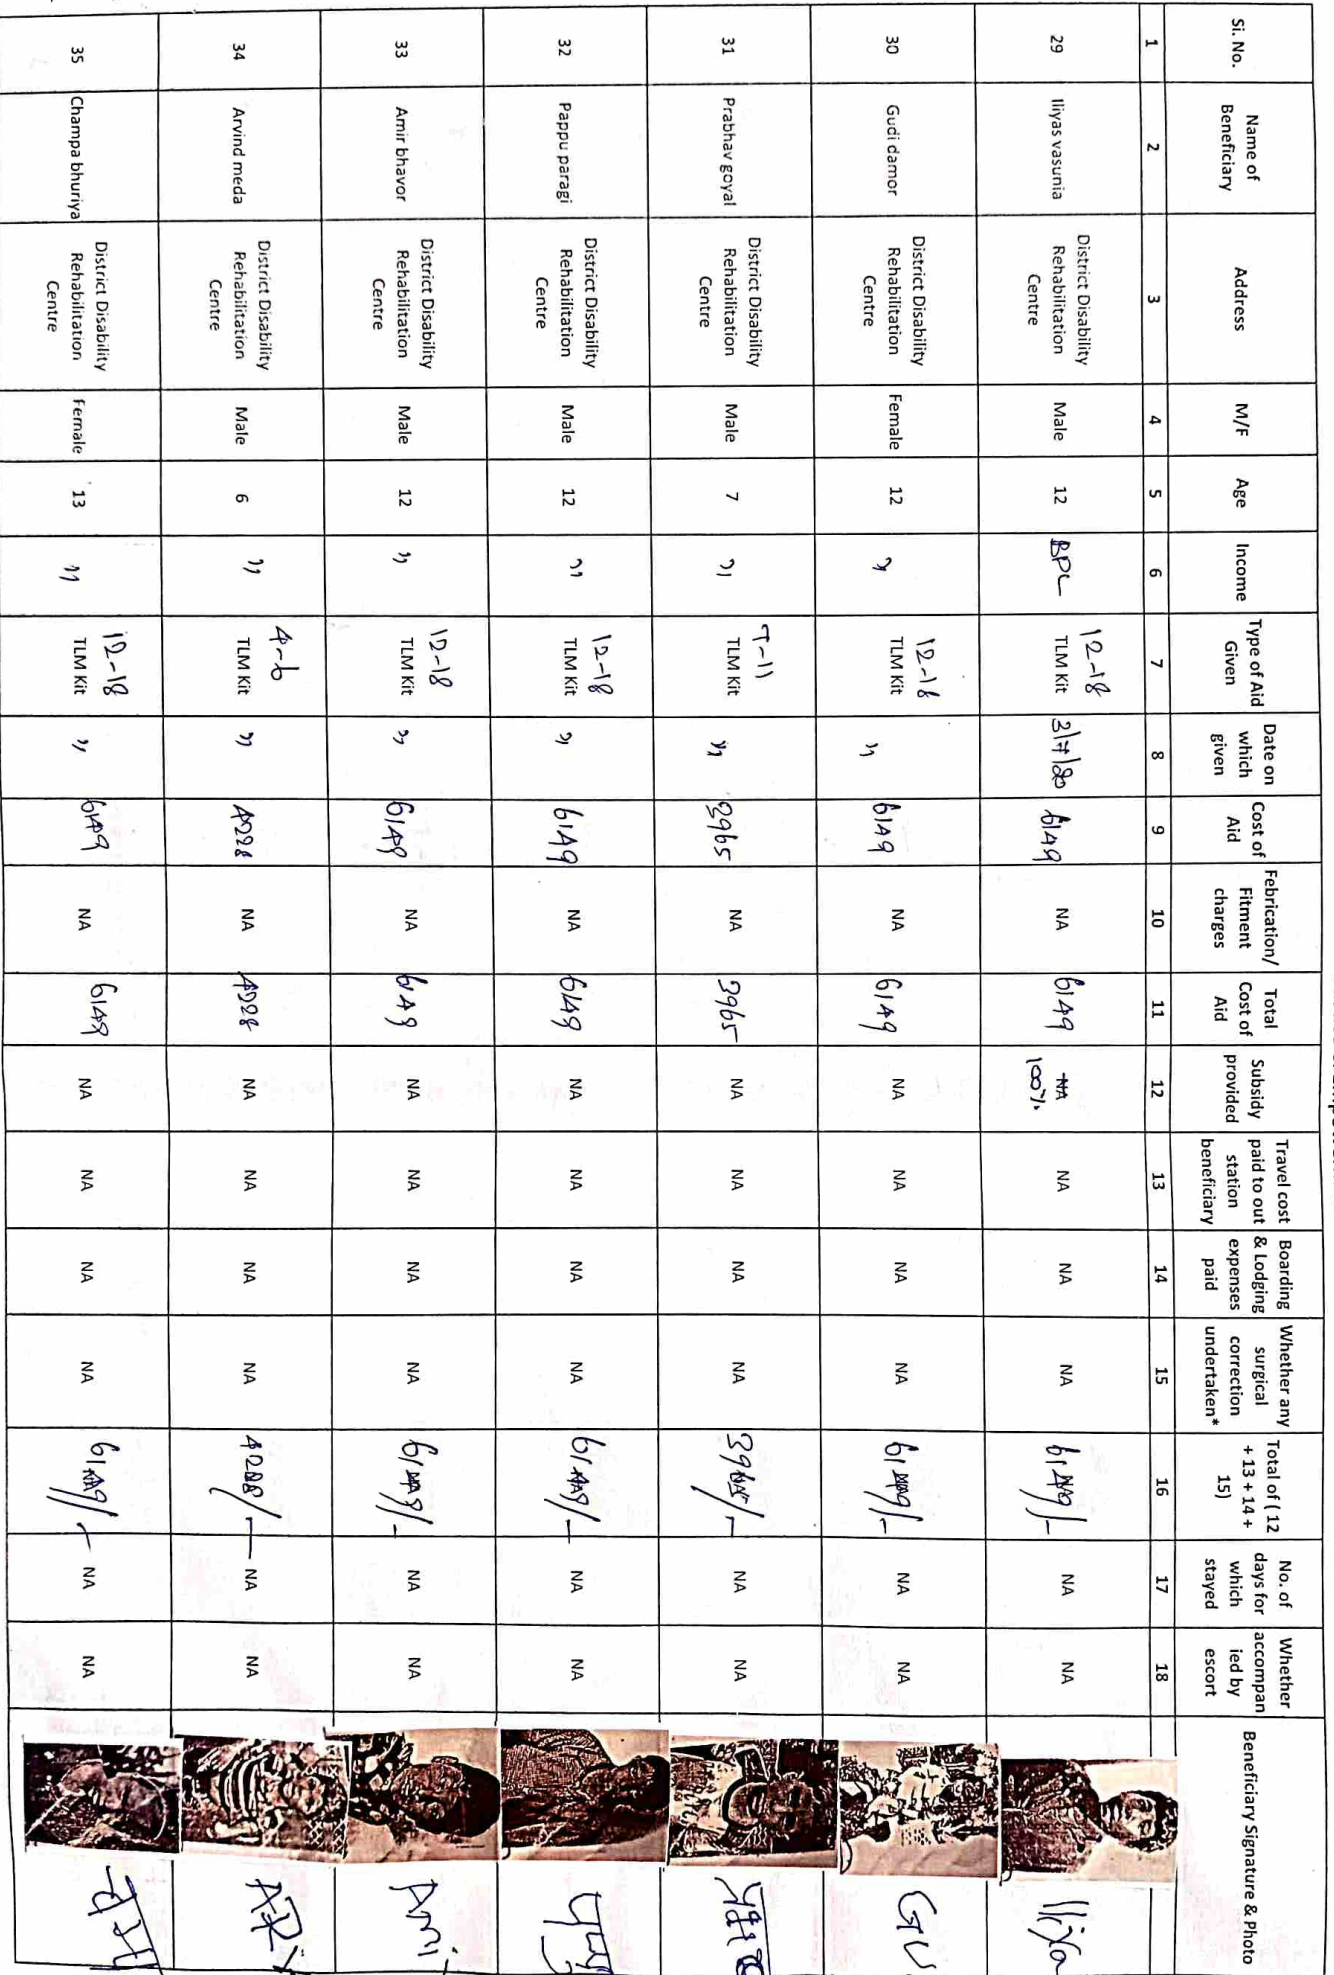 Si. No. | Name of Beneficiary | Address | M/F | Age | Income | Type of Aid Given | Date on which given | Cost of Aid | Febrication/ Fitment charges | Total Cost of Aid | Subsidy provided | Travel cost paid to out station beneficiary | Boarding & Lodging expenses paid | Whether any surgical correction undertaken* | Total of ( 12 + 13 + 14 + 15) | No. of days for which stayed | Whether accompan ied by escort | Beneficiary Signature & Photo
1 | 2 | 3 | 4 | 5 | 6 | 7 | 8 | 9 | 10 | 11 | 12 | 13 | 14 | 15 | 16 | 17 | 18
29 | Iliyas vasunia | District Disability Rehabilitation Centre | Male | 12 | BPL | 12-18 TLM Kit | 3/7/20 | 6149 | NA | 6149 | NA 100% | NA | NA | NA | 6149/- | NA | NA | Iliya
30 | Gudi damor | District Disability Rehabilitation Centre | Female | 12 | ,, | 12-18 TLM Kit | ,, | 6149 | NA | 6149 | NA | NA | NA | NA | 6149/- | NA | NA | GU
31 | Prabhav goyal | District Disability Rehabilitation Centre | Male | 7 | ,, | 7-11 TLM Kit | ,, | 3965 | NA | 3965 | NA | NA | NA | NA | 3965/- | NA | NA
32 | Pappu paragi | District Disability Rehabilitation Centre | Male | 12 | ,, | 12-18 TLM Kit | ,, | 6149 | NA | 6149 | NA | NA | NA | NA | 6149/- | NA | NA
33 | Amir bhavor | District Disability Rehabilitation Centre | Male | 12 | ,, | 12-18 TLM Kit | ,, | 6149 | NA | 6149 | NA | NA | NA | NA | 6149/- | NA | NA | Ami
34 | Arvind meda | District Disability Rehabilitation Centre | Male | 6 | ,, | 4-6 TLM Kit | ,, | 4228 | NA | 4228 | NA | NA | NA | NA | 4228/- | NA | NA
35 | Champa bhuriya | District Disability Rehabilitation Centre | Female | 13 | ,, | 12-18 TLM Kit | ,, | 6149 | NA | 6149 | NA | NA | NA | NA | 6149/- | NA | NA